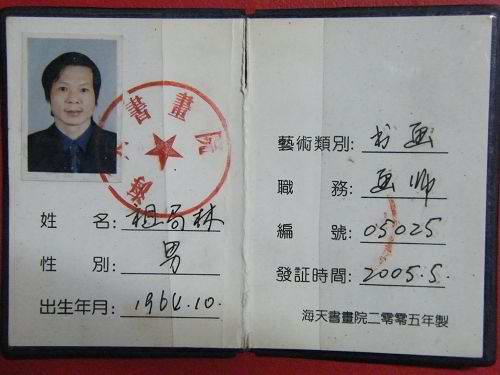 海天書畫院
姓 名: 祖高林
性 別: 男
出生年月: 1964.10.
藝術類別: 书画
職 務: 画师
編 號: 05025
發証時間: 2005.5.
海天書畫院二零零五年製